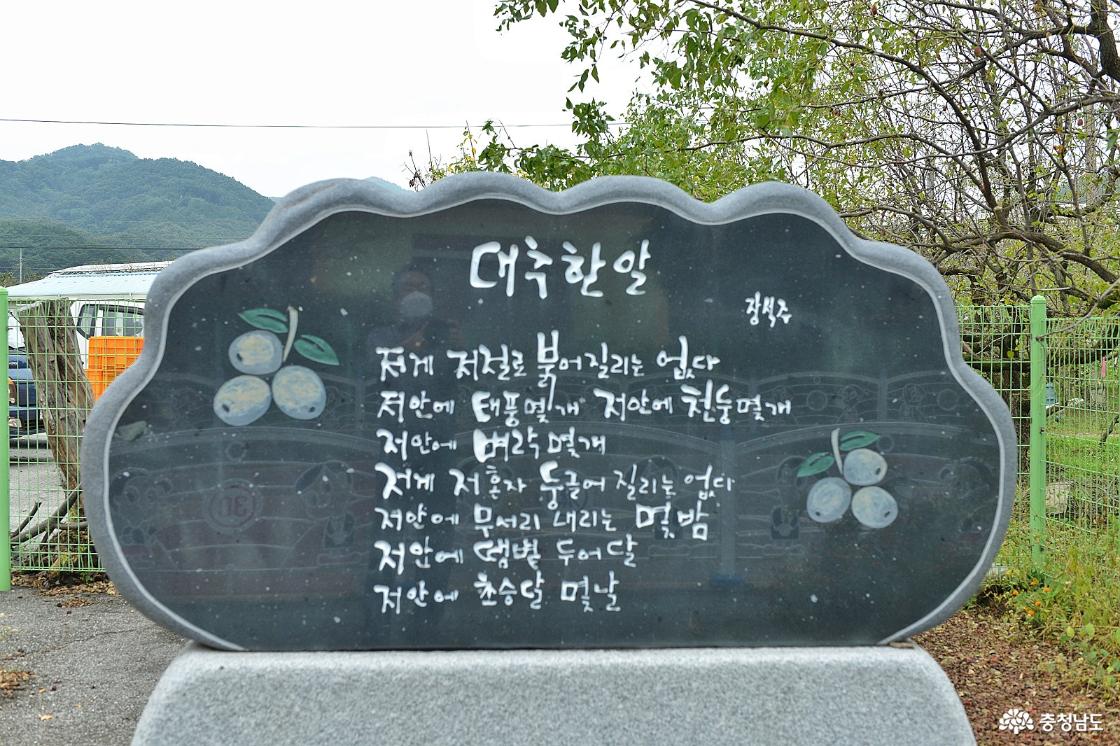 대추 한 알
장석주
저게 저절로 붉어질리는 없다
저안에 태풍몇개 저안에 천둥몇개
저안에 벼락 몇개
저게 저 혼자 둥글어 질리는 없다
저안에 무서리 내리는 몇밤
저안에 땡볕 두어달
저안에 초승달 몇날
충청남도